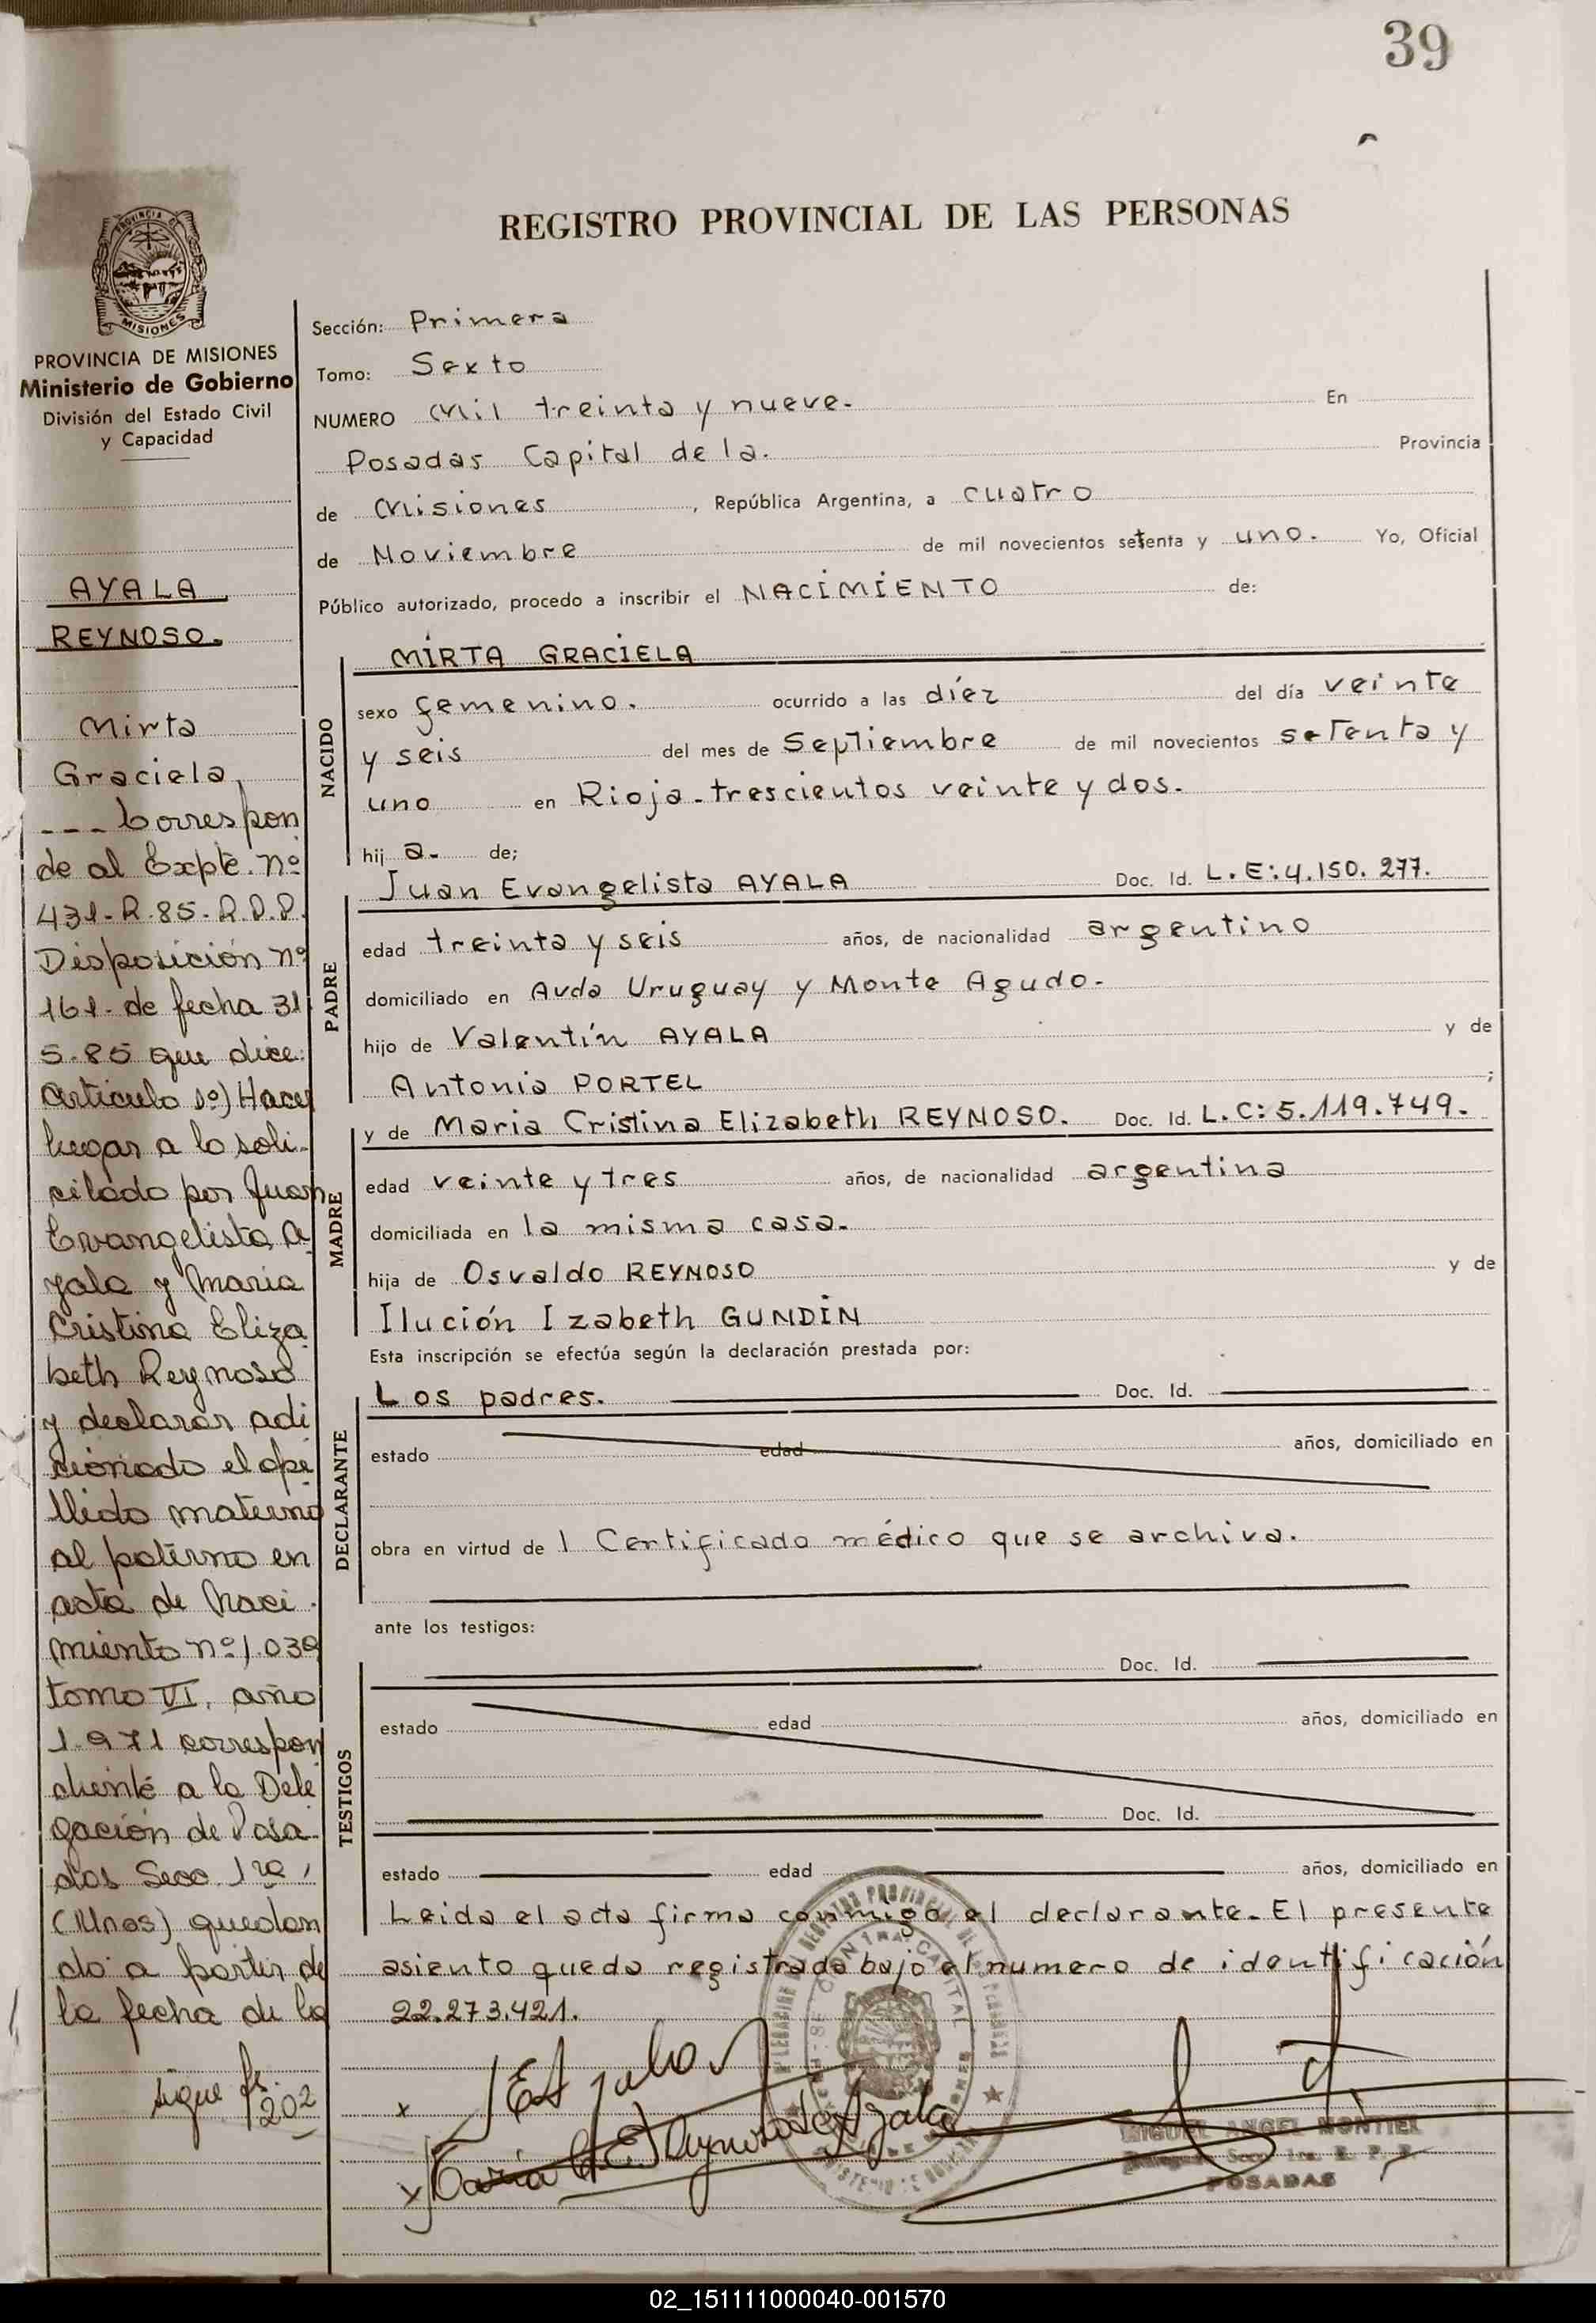 39
REGISTRO PROVINCIAL DE LAS PERSONAS
PROVINCIA DE MISIONES
Ministerio de Gobierno
División del Estado Civil
y Capacidad
AYALA
REYNOSO.
Mirta
Graciela,
--- Correspon
de al Expte. nº
431-R-85-R.D.P.
Disposición nº
161- de fecha 31
5-85 que dice:
Artículo 1º) Hacer
lugar a lo soli-
citado por Juan
Evangelista A
yala y María
Cristina Eliza
beth Reynoso
y declarar adi
cionado el ape
llido materno
al paterno en
acta de Naci-
miento nº 1.039
tomo VI, año
1.971 correspon
diente a la Dele
gación de Posa-
das Secc. 1ra,
(Mnes) quedan
do a partir de
la fecha de la
sigue fs.
202
Sección: Primera
Tomo: Sexto
NUMERO Mil treinta y nueve. En
Posadas Capital de la. Provincia
de Misiones, República Argentina, a cuatro
de Noviembre de mil novecientos setenta y uno. Yo, Oficial
Público autorizado, procedo a inscribir el NACIMIENTO de:
NACIDO
MIRTA GRACIELA
sexo femenino. ocurrido a las díez del día veinte
y seis del mes de Septiembre de mil novecientos setenta y
uno en Rioja-trescientos veinte y dos.
hij a. de;
PADRE
Juan Evangelista AYALA Doc. Id. L.E:4.150.277.
edad treinta y seis años, de nacionalidad argentino
domiciliado en Avda Uruguay y Monte Agudo.
hijo de Valentín AYALA y de
Antonia PORTEL ;
MADRE
y de Maria Cristina Elizabeth REYNOSO. Doc. Id. L.C:5.119.749.
edad veinte y tres años, de nacionalidad argentina
domiciliada en la misma casa.
hija de Osvaldo REYNOSO y de
Ilución Izabeth GUNDIN
Esta inscripción se efectúa según la declaración prestada por:
DECLARANTE
Los padres. Doc. Id.
estado edad años, domiciliado en
obra en virtud de 1 Certificado médico que se archiva.
ante los testigos:
TESTIGOS
Doc. Id.
estado edad años, domiciliado en
Doc. Id.
estado edad años, domiciliado en
Leida el acta firma conmigo el declarante. El presente
asiento queda registrado bajo el numero de identificación
22.273.421.
MIGUEL ANGEL MONTIEL
POSADAS
02_151111000040-001570